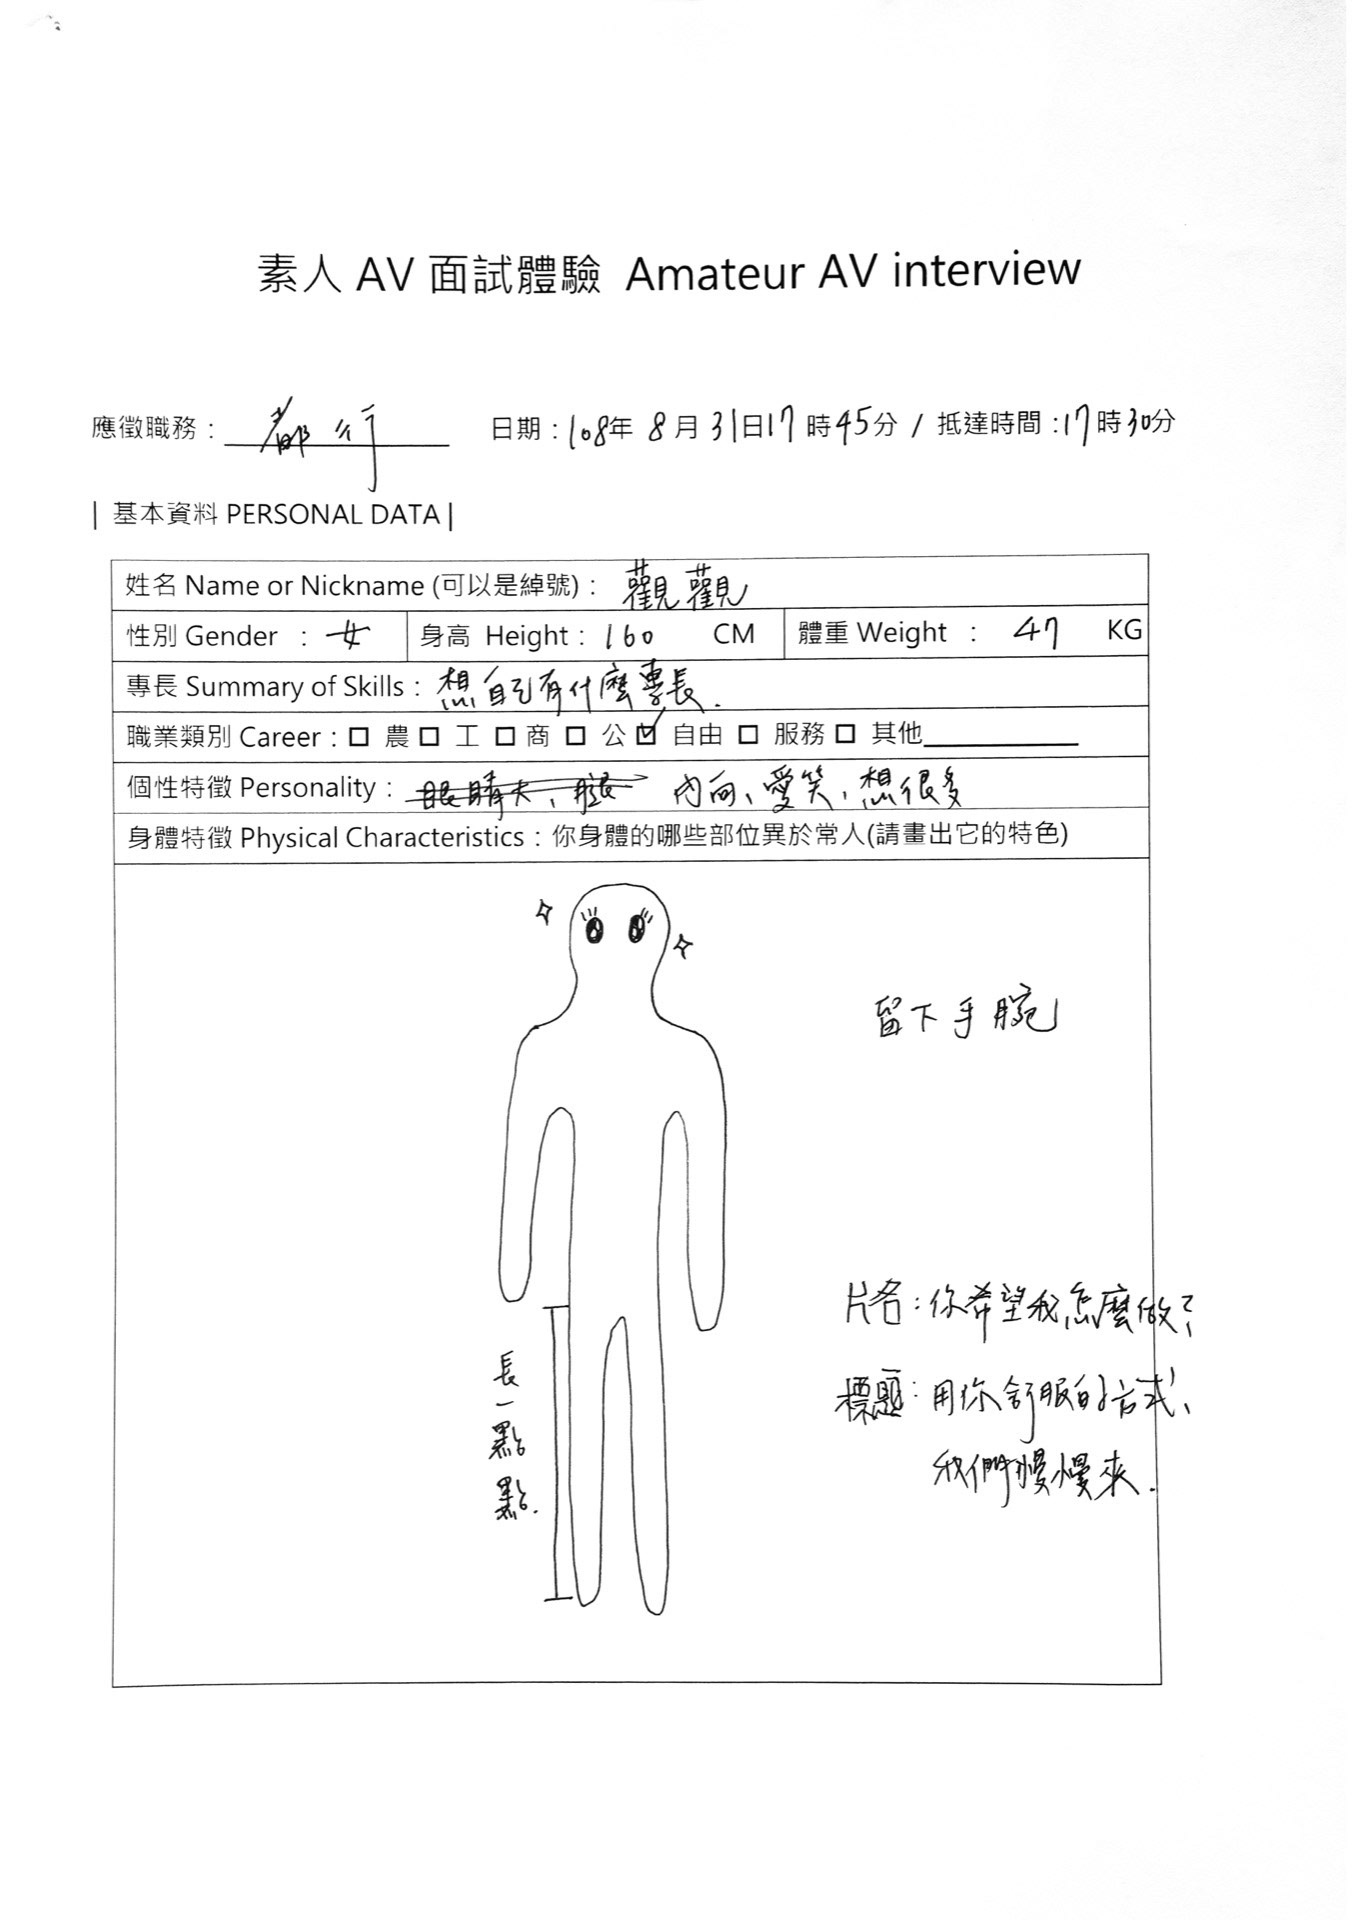 素人 AV 面試體驗 Amateur AV interview
應徵職務：都行 日期：108年 8月31日17時45分 / 抵達時間：17時30分
| 基本資料 PERSONAL DATA |
姓名 Name or Nickname (可以是綽號)：觀觀
性別 Gender ：女 身高 Height：160 CM 體重 Weight ：47 KG
專長 Summary of Skills：想自己有什麼專長.
職業類別 Career：□ 農 □ 工 □ 商 □ 公 ☑ 自由 □ 服務 □ 其他
個性特徵 Personality：眼睛大、腿 內向、愛笑、想很多
身體特徵 Physical Characteristics：你身體的哪些部位異於常人(請畫出它的特色)
留下手腕
片名：你希望我怎麼做？
長一點點.
標題：用你舒服的方式、
我們慢慢來.